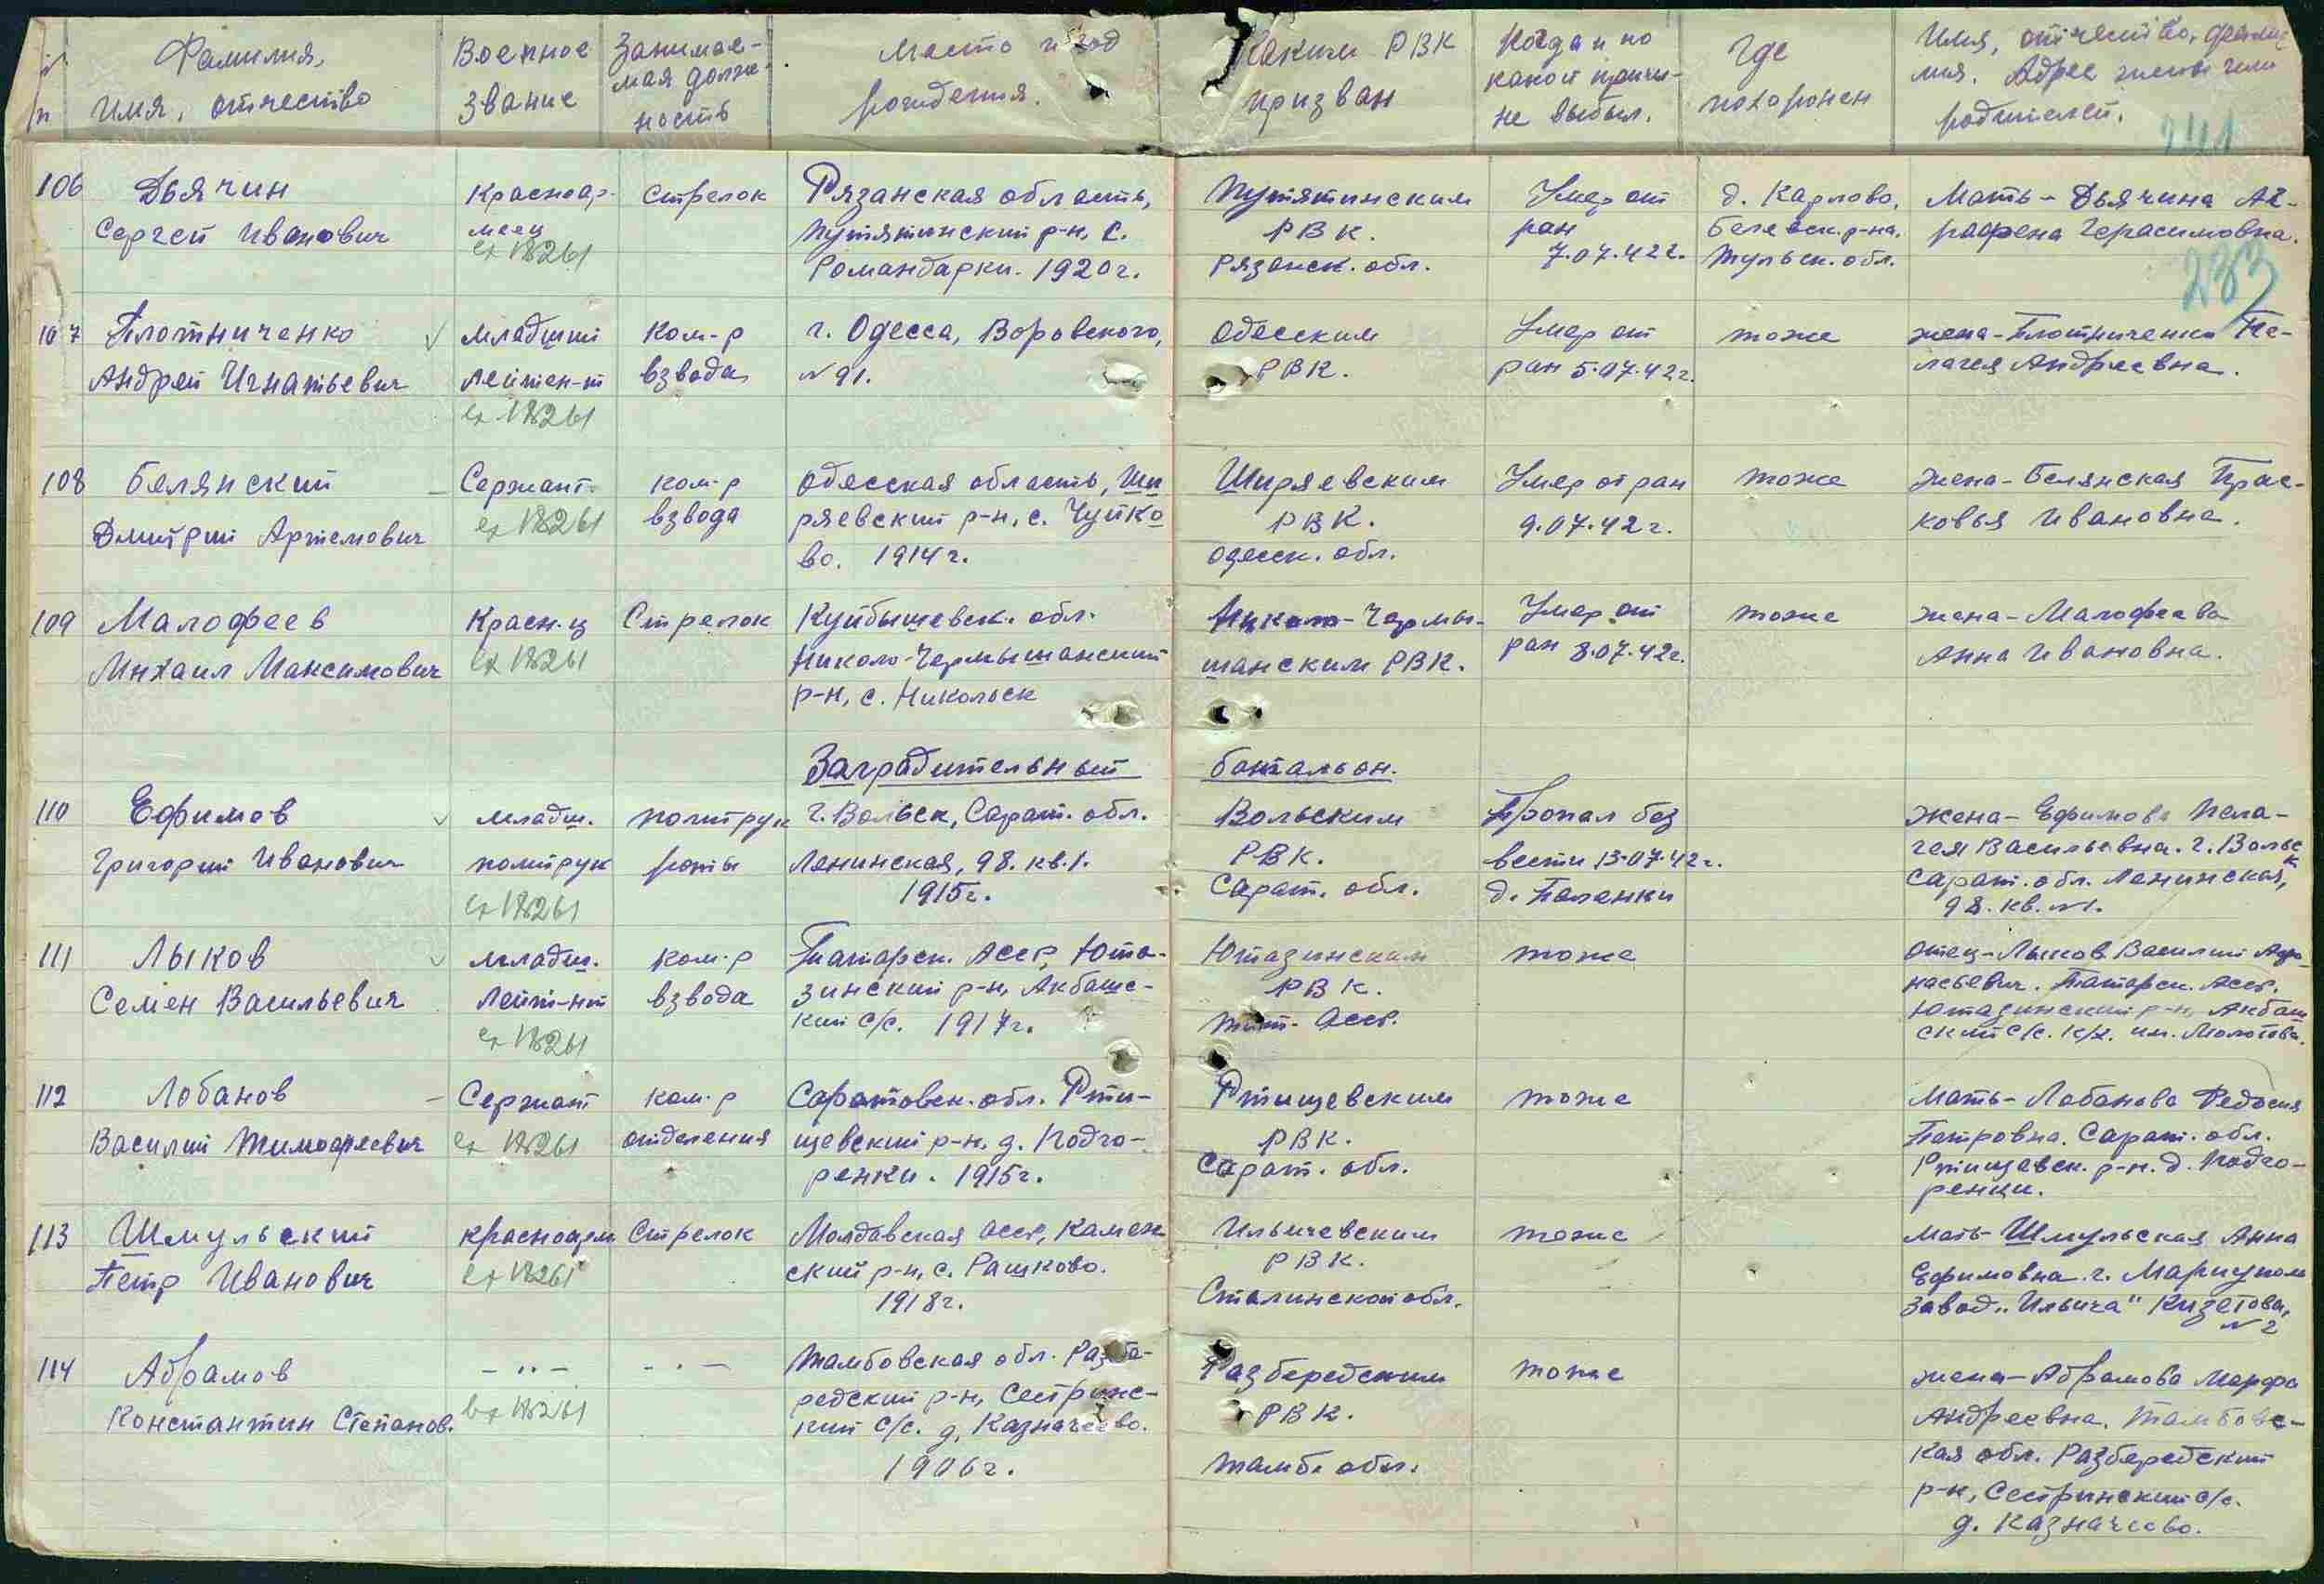 п/п
Фамилия,
имя, отчество
Военное
звание
Занимае-
мая долж-
ность
Место и год
рождения.
Каким РВК
призван
Когда и по
какой причи-
не выбыл.
Где
похоронен
Имя, отчество, фами-
лия. Адрес жены или
родителей.
241
233
106
Дьячин
Сергей Иванович
Красноар-
меец
18261
Стрелок
Рязанская область,
Путятинский р-н, с.
Романдарки. 1920 г.
Путятинским
РВК.
Рязанск. обл.
Умер от
ран
7.07.42 г.
д. Карлово,
Белевск. р-на.
Тульск. обл.
Мать - Дьячина Аг-
рафена Герасимовна.
107
Плотниченко
Андрей Игнатьевич
Младший
Лейтен-т
18261
Ком-р
взвода
г. Одесса, Воровского,
№ 91.
Одесским
РВК.
Умер от
ран 5.07.42 г.
тоже
жена - Плотниченко Пе-
лагея Андреевна.
108
Белянский
Дмитрий Артемович
Сержант.
18261
ком-р
взвода
Одесская область, Ши
ряевский р-н, с. Чуйко
во. 1914 г.
Ширяевским
РВК.
Одесск. обл.
Умер от ран
9.07.42 г.
тоже
жена - Белянская Прас-
ковья Ивановна.
109
Малофеев
Михаил Максимович
Красн-ц
18261
Стрелок
Куйбышевск. обл.
Николо-Чермышанский
р-н, с. Никольск
Николо-Чермы-
шанским РВК.
Умер от
ран 8.07.42 г.
тоже
жена - Малофеева
Анна Ивановна.
Заградительный батальон.
110
Ефимов
Григорий Иванович
младш.
политрук
18261
политрук
роты
г. Вольск, Сарат. обл.
Ленинская, 98. кв. 1.
1915 г.
Вольским
РВК.
Сарат. обл.
Пропал без
вести 13.07.42 г.
д. Паленки
Жена - Ефимова Пела-
гея Васильевна. г. Вольск
Сарат. обл. Ленинская,
98. кв. № 1.
111
Лыков
Семен Васильевич
младш.
Лейт-нт
18261
ком-р
взвода
Татарск. АССР, Юта-
зинский р-н, Акбашс-
кий с/с. 1917 г.
Ютазинским
РВК.
Тат. АССР.
тоже
Отец - Лыков Василий Афо-
насьевич. Татарск. АССР.
Ютазинский р-н, Акбаш
ский с/с. к/х. им. Молотова.
112
Лобанов
Василий Тимофеевич
Сержант
18261
ком-р
отделения
Саратовск. обл. Рти-
щевский р-н, д. Подго-
ренки. 1915 г.
Ртищевским
РВК.
Сарат. обл.
тоже
Мать - Лобанова Федосия
Петровна. Сарат. обл.
Ртищевск. р-н. д. Подго-
ренки.
113
Шмульский
Петр Иванович
красноарм
18261
Стрелок
Молдавская АССР, Камен
ский р-н, с. Рашково.
1918 г.
Ильичевским
РВК.
Сталинской обл.
тоже
Мать - Шмульская Анна
Ефимовна. г. Мариуполь
завод "Ильича" Кизетова,
№ 2
114
Абрамов
Константин Степанов.
- " -
18261
- " -
Тамбовская обл. Разбе-
редский р-н, Сестринс-
кий с/с. д. Казначеево.
1906 г.
Разбередским
РВК.
Тамб. обл.
тоже
жена - Абрамова Марфа
Андреевна. Тамбовс-
кая обл. Разбередский
р-н, Сестринский с/с.
д. Казначеево.